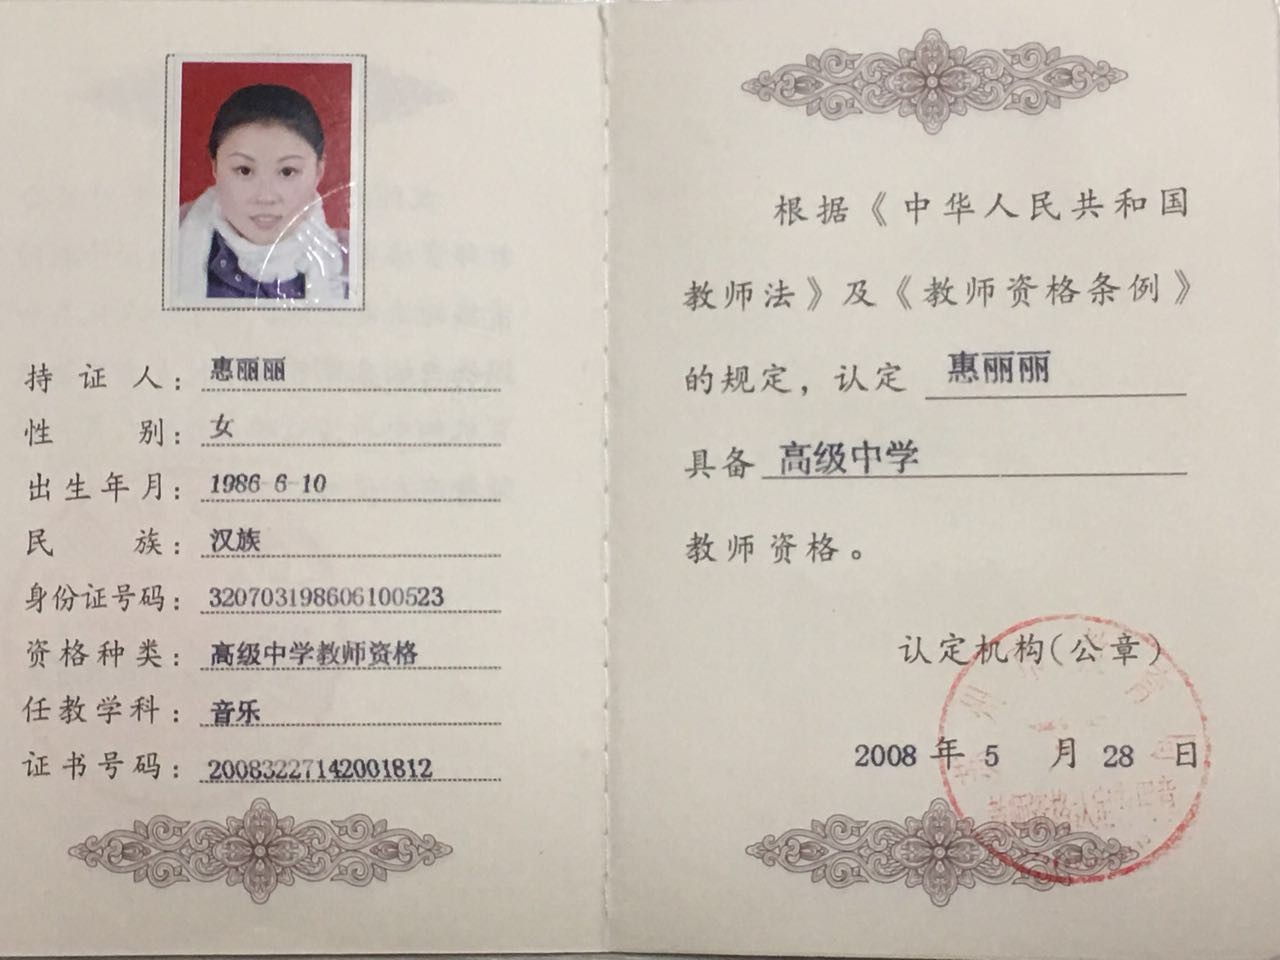 持证人：惠丽丽
性别：女
出生年月：1986-6-10
民族：汉族
身份证号码：320703198606100523
资格种类：高级中学教师资格
任教学科：音乐
证书号码：20083227142001812
根据《中华人民共和国
教师法》及《教师资格条例》
的规定，认定 惠丽丽
具备 高级中学
教师资格。
认定机构(公章)
2008 年 5 月 28 日